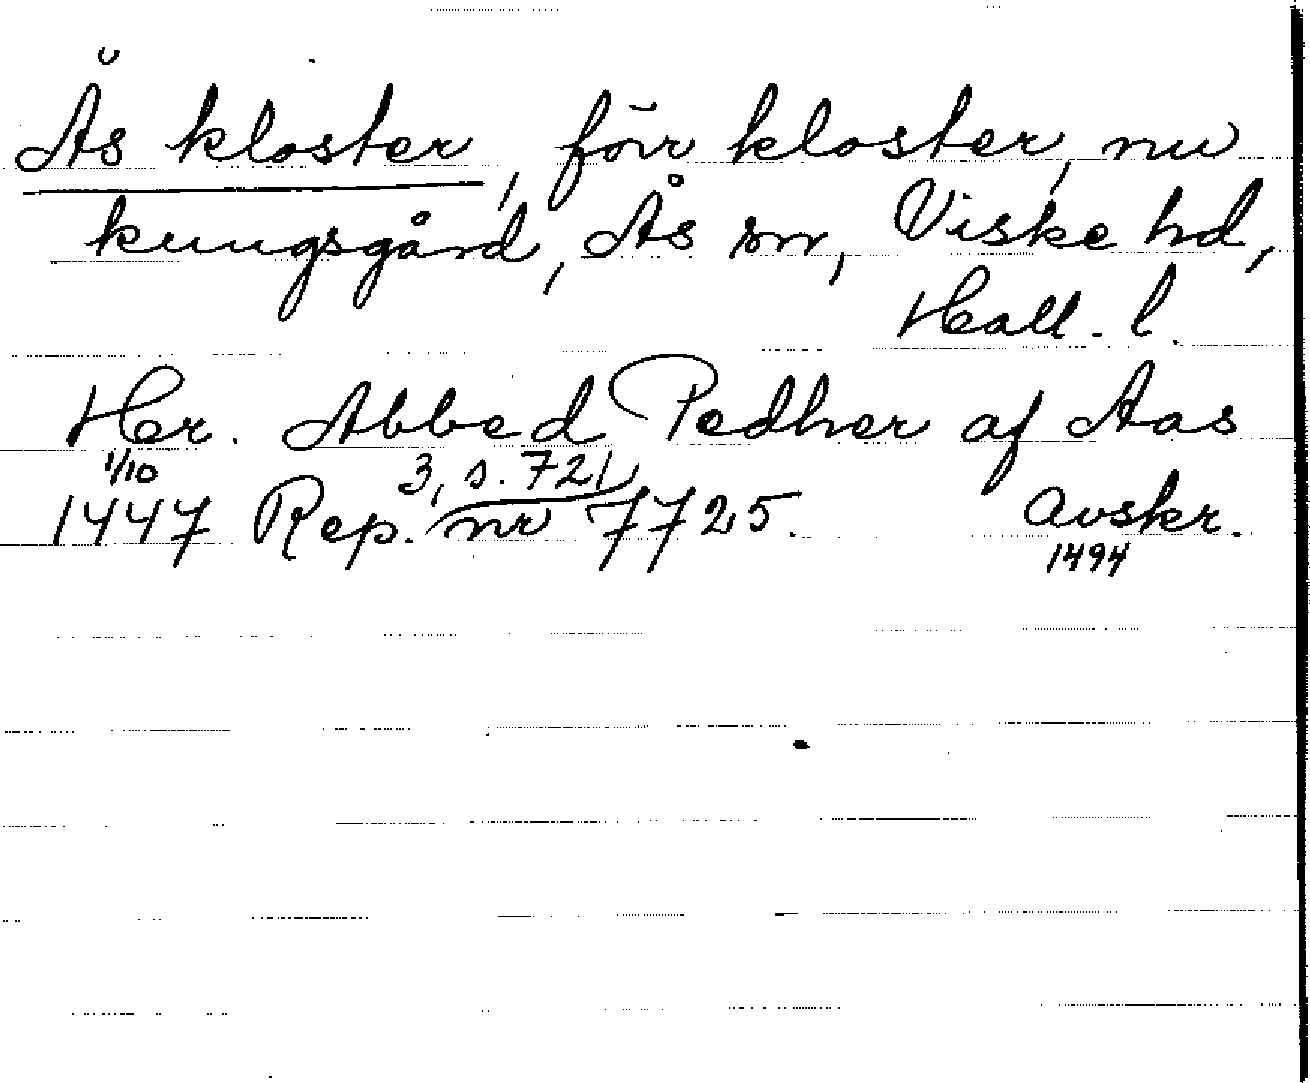 Ås kloster, förr kloster, nu
kungsgård, Ås sn, Viske hd,
Hall. l.
Her. Abbed Pedher af Aas
1/10 3, s. 721
1447 Rep. nr 7725. Avskr.
1494